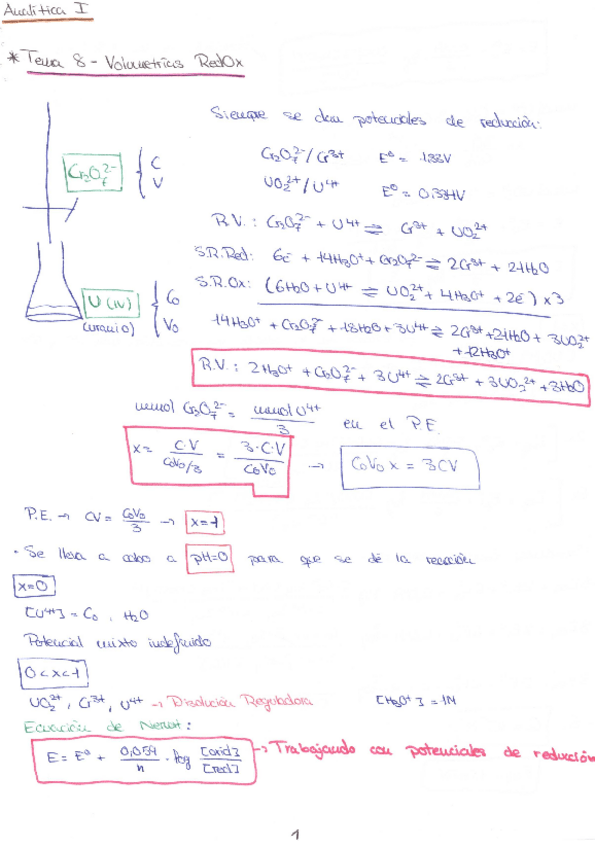 Analítica I
* Tema 8 - Volumetrías RedOx
Siempre se dan potenciales de reducción:
Cr₂O₇²⁻ { C V
Cr₂O₇²⁻/Cr³⁺ E⁰ = 1.33V
UO₂²⁺/U⁴⁺ E⁰ = 0.334V
R.V.: Cr₂O₇²⁻ + U⁴⁺ ⇌ Cr³⁺ + UO₂²⁺
S.R.Red: 6e⁻ + 14H₃O⁺ + Cr₂O₇²⁻ ⇌ 2Cr³⁺ + 21H₂O
U(IV) { C₀ V₀
(uranio)
S.R.Ox: (6H₂O + U⁴⁺ ⇌ UO₂²⁺ + 4H₃O⁺ + 2e⁻) x3
14H₃O⁺ + Cr₂O₇²⁻ + 18H₂O + 3U⁴⁺ ⇌ 2Cr³⁺ + 21H₂O + 3UO₂²⁺
+ 12H₃O⁺
R.V.: 2H₃O⁺ + Cr₂O₇²⁻ + 3U⁴⁺ ⇌ 2Cr³⁺ + 3UO₂²⁺ + 3H₂O
mmol Cr₂O₇²⁻ = mmol U⁴⁺/3 en el P.E.
x = C·V/(C₀V₀/3) = 3·C·V/C₀V₀ → C₀V₀x = 3CV
P.E. → CV = C₀V₀/3 → x=1
· Se lleva a cabo a pH=0 para que se dé la reacción
x=0
[U⁴⁺] = C₀, H₂O
Potencial mixto indefinido
0<x<1
UO₂²⁺, Cr³⁺, U⁴⁺ → Disolución Reguladora [H₃O⁺] = 1N
Ecuación de Nernst:
E = E⁰ + 0,059/n · log [oxid]/[red] → Trabajando con potenciales de reducción
1